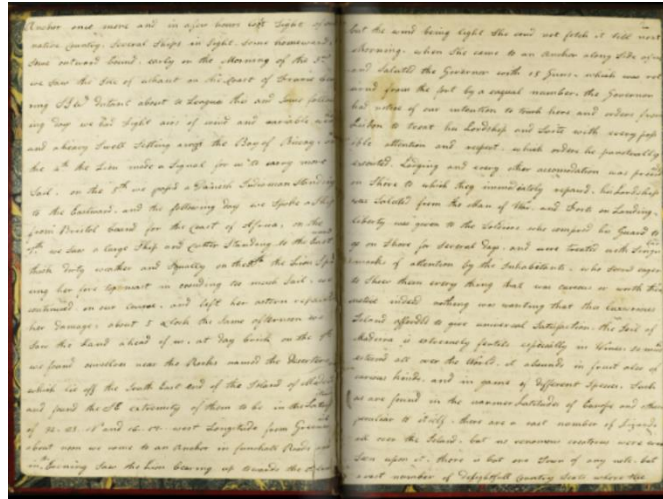 Anchor once more and in a few hours left Sight of our
native Country, Several Ships in Sight, some homeward,
some outward bound. early on the Morning of the
we saw the Isle of ushant on the Coast of France
ring distant about 10 Leagues this and some follow
ing day we had light airs of wind and variable
and a heavy Swell Setting across the Bay of Biscay, on
the the Lion made a Signal for us to carry more
Sail. on the 5th we passed a Danish Indiaman Standing
to the Eastward. and the following day we Spoke a Ship
from Bristol bound for the Coast of Africa, on the
we saw a large Ship and Cutter Standing to the East
thick dirty weather and Squally on the the Lion Spr
ing her fore topmast in crouding too much Sail, we
continued on our Course. and left her astern repair
her damage. about 5 oClock the Same afternoon we
Saw the Land ahead of us, at day break on the
we found ourselves near the Rocks named the Deserters
which lie off the South East end of the Island of Madeira
and found the extremity of them to be in the Latitude
of 32. 23. N and 16. West Longitude from Greenwich
about noon we came to an Anchor in funchale Roads and
in Evening Saw the Lion bearing up towards the
but the wind being light She could not fetch it till next
Morning. when She came to an anchor along Side of us
and Saluted the Governor with 15 Guns. which was ret
urned from the fort by a equal number. the Governor
had notice of our intention to touch here and orders from
Lisbon to treat his Lordship and Suite with every poss
ible attention and respect. which orders he punctually
executed. Lodging and every other accomodation was provided
on Shore to which they immediately repaired. his Lordship
was Saluted from the Man of War. and Forts on Landing.
liberty was given to the Soldiers who composed his Guard to
go on Shore for Several days. and were treated with Singular
marks of attention by the Inhabitants. who Seemed eager
to Shew them every thing that was curious or worth their
notice indeed nothing was wanting that this luxurious
Island afforded to give universal Satisfaction. the Soil of
Madeira is extremely fertile especially in Wines, so much
esteemed all over the World. it abounds in fruit also of
various kinds, and in game of different Species. Such
as are found in the warmer Latitudes of Europe and others
peculiar to itself. there are a vast number of Lizards
all over the Island. but no venomous creatures were ever
Seen upon it. there is but one Town of any note. but
a vast number of delightfull Country Seats where the